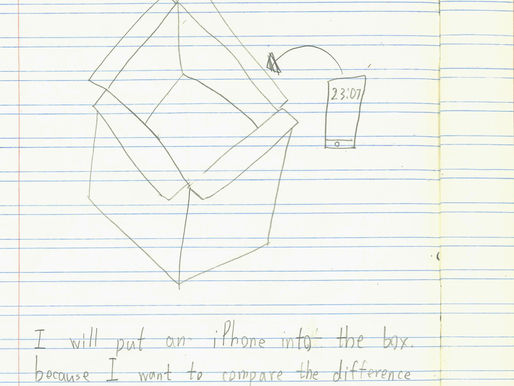 23:07
I will put an iPhone into the box.
because I want to compare the difference